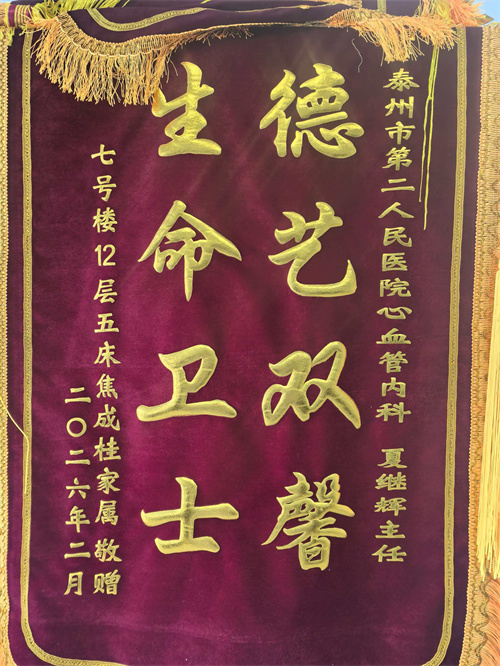 泰州市第二人民医院心血管内科 夏继辉主任
德艺双馨
生命卫士
七号楼12层五床焦成桂家属 敬赠
二〇二六年二月